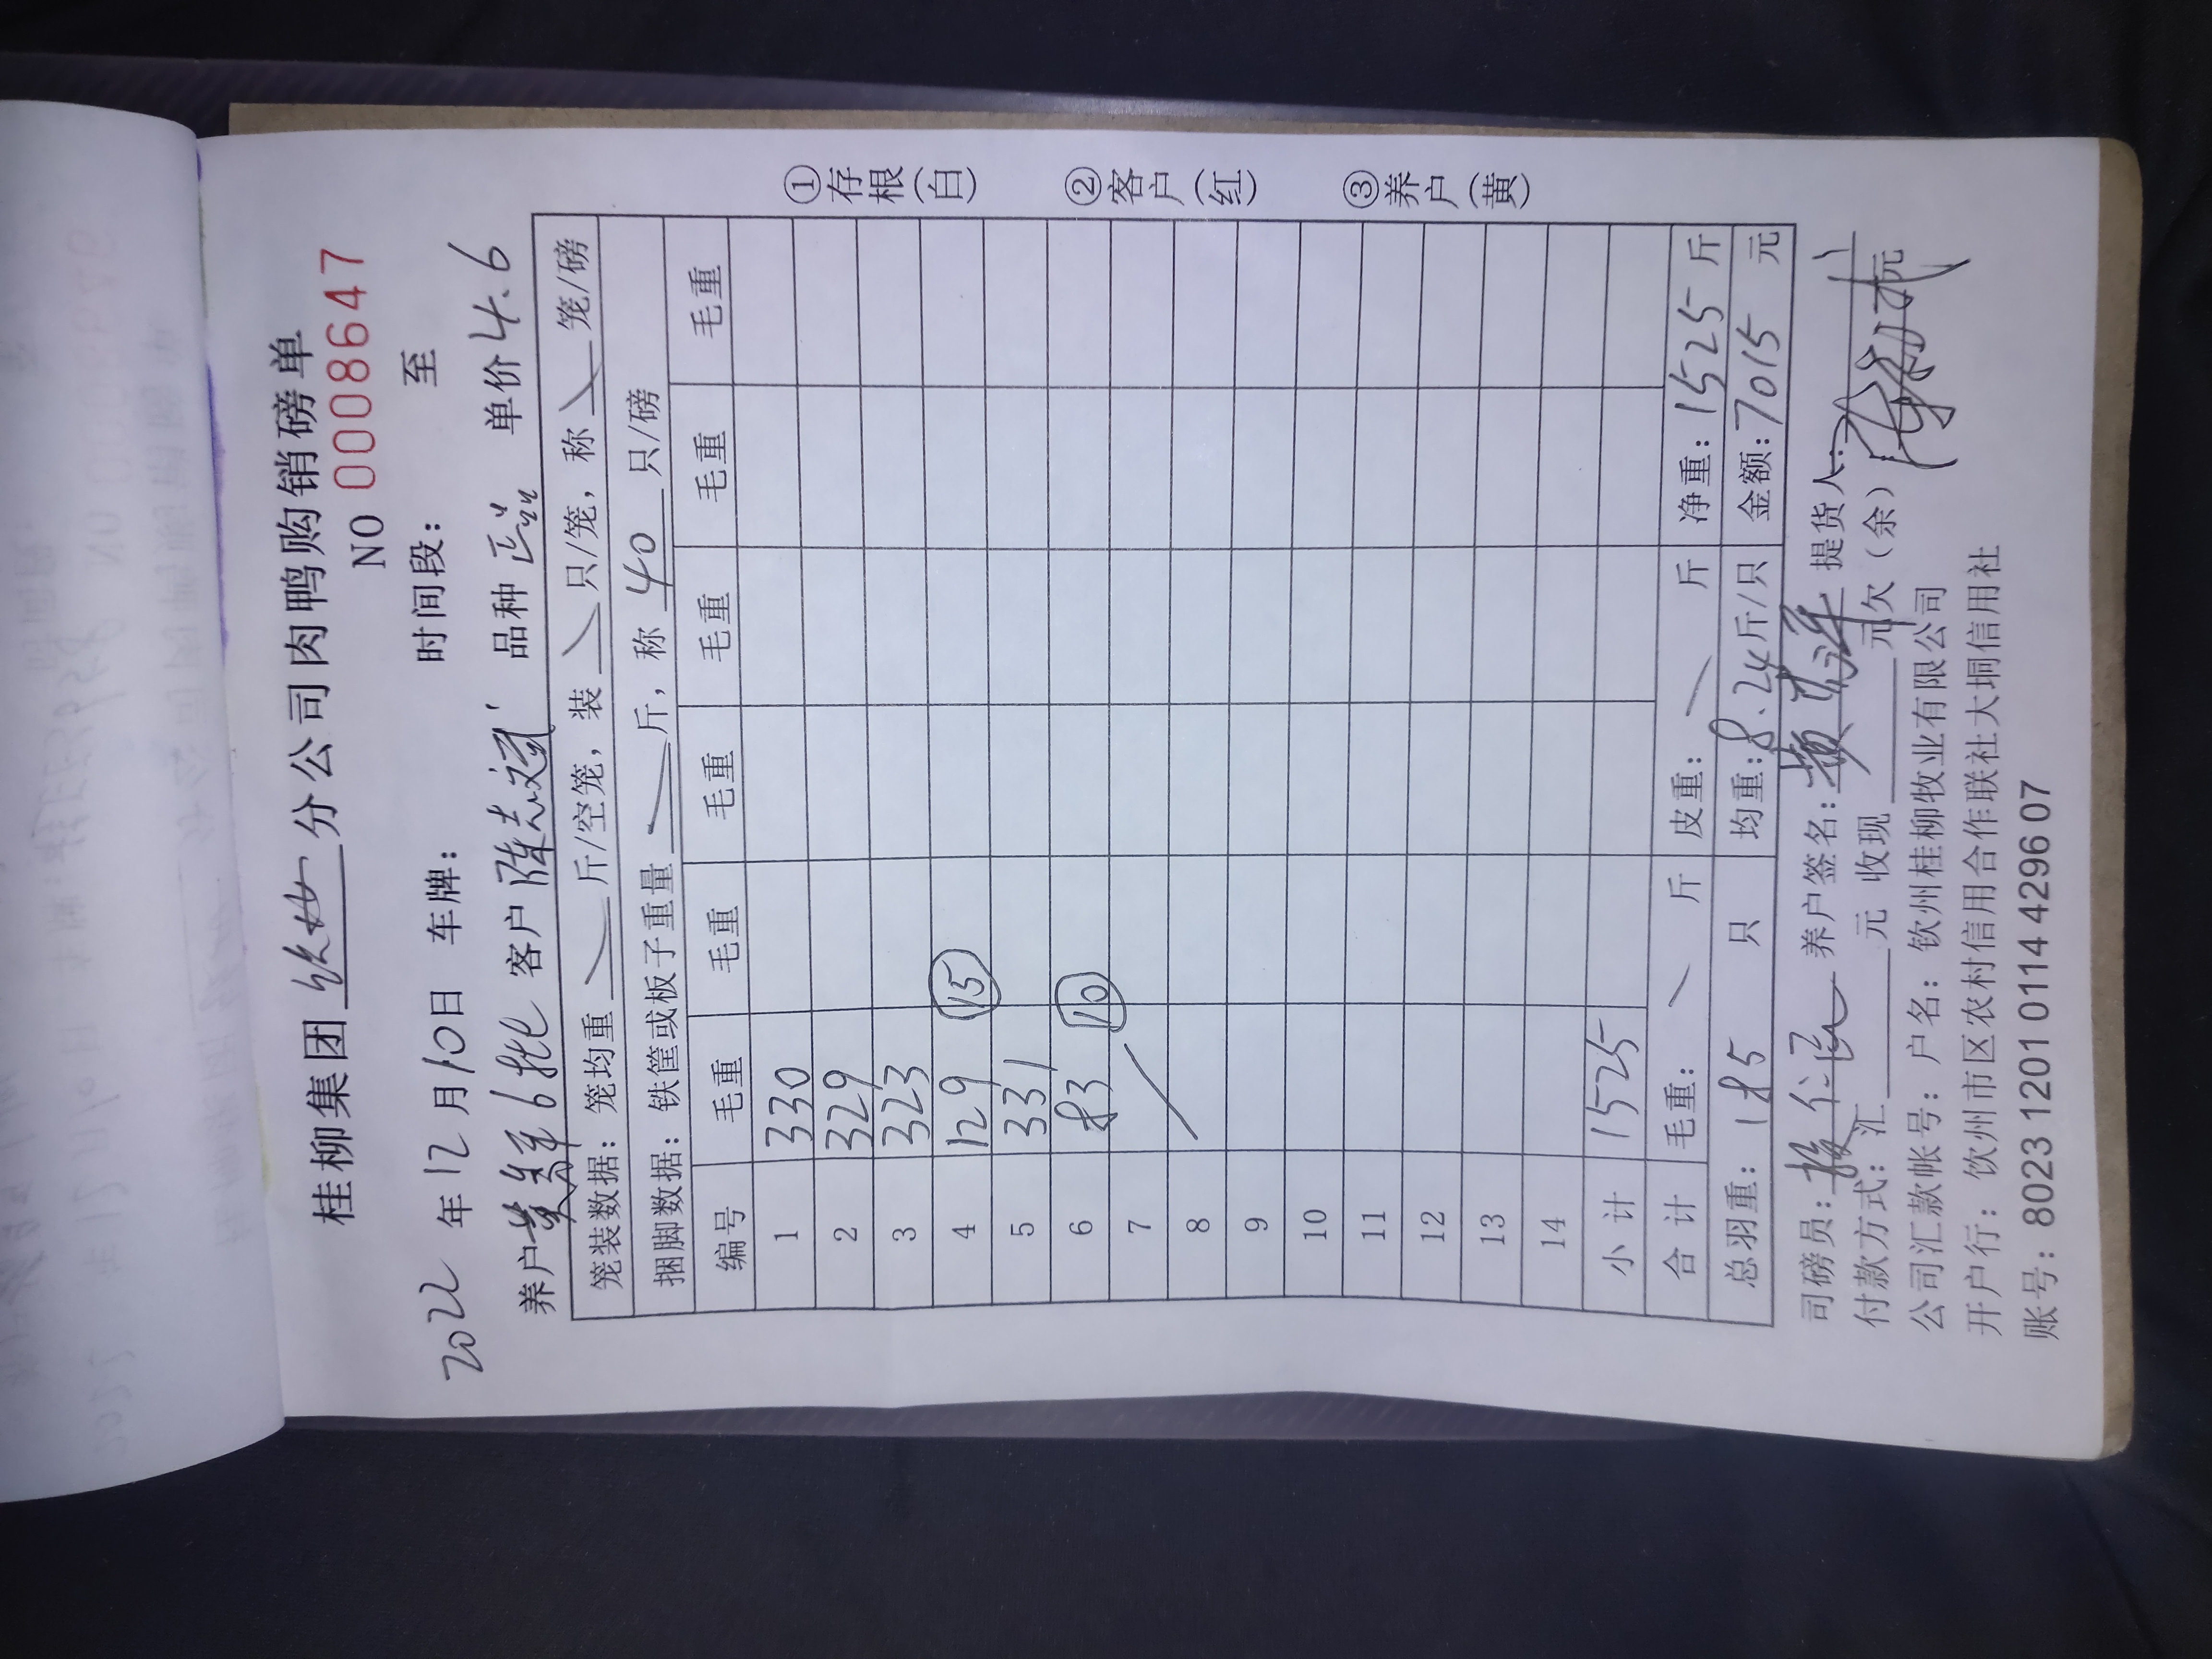 桂柳集团 钦州 分公司肉鸭购销磅单
NO 0008647
2022 年 12 月 10 日 车牌： 时间段： 至
养户 6批 客户 陈志斌 品种 正品 单价 4.6
笼装数据：笼均重 斤/空笼，装 只/笼，称 笼/磅
捆脚数据：铁筐或板子重量 斤，称 40 只/磅
编号 毛重 毛重 毛重 毛重 毛重 毛重
1 330
2 329
3 323
4 129 ⑮
5 331
6 83 ⑩
7
8
9
10
11
12
13
14
小计 1525
合计 毛重： 斤 皮重： 斤 净重：1525 斤
总羽重：185 只 均重：8.24 斤/只 金额：7015 元
司磅员： 养户签名： 提货人：
付款方式：汇 元 收现 元欠（余） 元
公司汇款帐号：户名：钦州桂柳牧业有限公司
开户行：钦州市区农村信用合作联社大垌信用社
账号：8023 1201 0114 4296 07
①存根(白)
②客户(红)
③养户(黄)